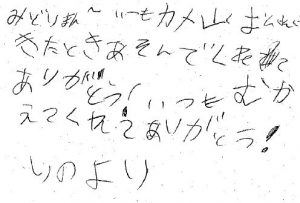 みどりさん〜 いつもカメ山
きたときあそんでくれて
ありがとう！いつもむか
えてくれてありがとう！
りのより